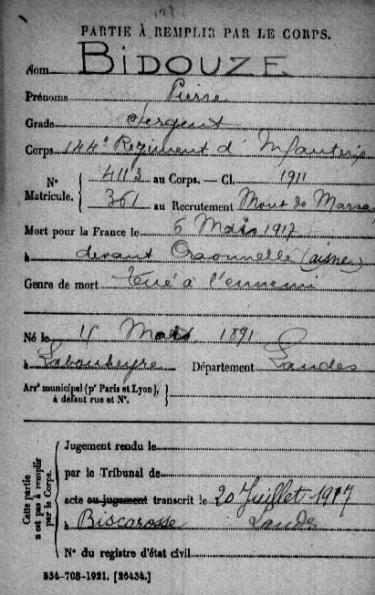 PARTIE À REMPLIR PAR LE CORPS.
Nom BIDOUZE
Prénoms Pierre
Grade Sergent
Corps 144e Régiment d'Infanterie
N° Matricule. { 4113 au Corps. — Cl. 1911
361 au Recrutement Mont de Marsa
Mort pour la France le 6 Mai 1917
à devant Craonnelle (aisne)
Genre de mort tué à l'ennemi
Né le Mars 1891
à Labouheyre Département Landes
Arrt municipal (pr Paris et Lyon), à défaut rue et N°.
Cette partie n'est pas à remplir par le Corps.
Jugement rendu le
par le Tribunal de
acte ou jugement transcrit le 20 Juillet 1917
à Biscarosse Landes
N° du registre d'état civil
534-708-1921. [26434.]